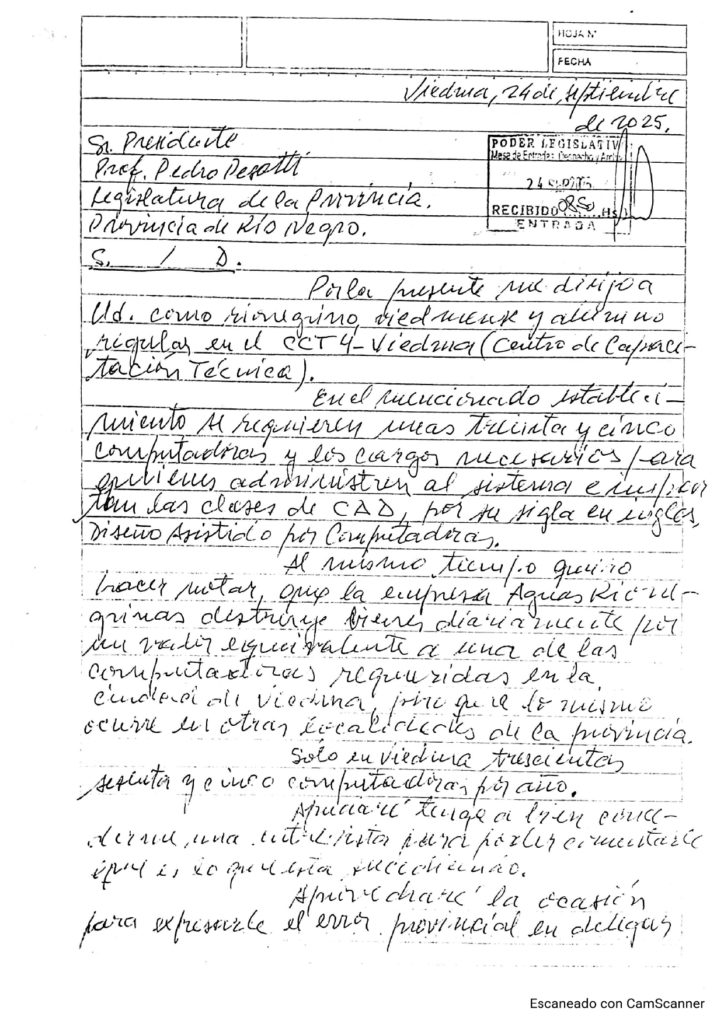 HOJA Nº
FECHA
Viedma, 24 de septiembre
de 2025.
Sr. Presidente
Prof. Pedro Pesatti
Legislatura de la Provincia.
Provincia de Río Negro.
S. / D.
PODER LEGISLATIV
Mesa de Entradas, Despacho y Archivo
24 SEP 2025
RECIBIDO 0850 Hs
ENTRADA
Por la presente me dirijo a
Ud. como rionegrino, viedmense y alumno
regular en el CCT 4-Viedma (Centro de Capaci-
tación Técnica).
En el mencionado estableci-
miento se requieren unas treinta y cinco
computadoras y los cargos necesarios para
quienes administren al sistema e impar
tan las clases de CAD, por su sigla en inglés,
Diseño Asistido por Computadoras.
Al mismo tiempo quiero
hacer notar, que la empresa Aguas Rione-
grinas destruye bienes diariamente por
un valor equivalente a una de las
computadoras requeridas en la
ciudad de Viedma, pero que lo mismo
ocurre en otras localidades de la provincia.
Sólo en Viedma trescientas
sesenta y cinco computadoras por año.
Apreciaré tenga a bien conce-
derme una entrevista para poder comentarle
qué es lo que está sucediendo.
Aprovecharé la ocasión
para expresarle el error provincial en delegar
Escaneado con CamScanner